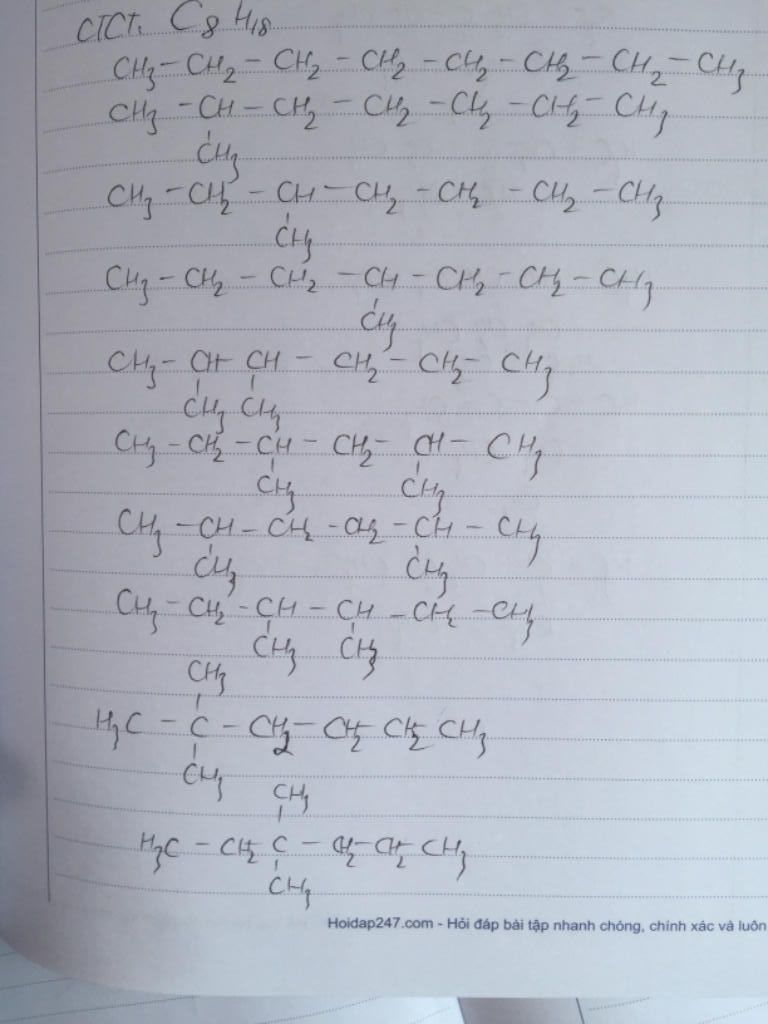 CTCT: C8H18
CH3 - CH2 - CH2 - CH2 - CH2 - CH2 - CH2 - CH3
CH3 - CH - CH2 - CH2 - CH2 - CH2 - CH3
CH3
CH3 - CH2 - CH - CH2 - CH2 - CH2 - CH3
CH3
CH3 - CH2 - CH2 - CH - CH2 - CH2 - CH3
CH3
CH3 - CH CH - CH2 - CH2 - CH3
CH3 CH3
CH3 - CH2 - CH - CH2 - CH - CH3
CH3 CH3
CH3 - CH - CH2 - CH2 - CH - CH3
CH3 CH3
CH3 - CH2 - CH - CH - CH2 - CH3
CH3 CH3
CH3
H3C - C - CH2 - CH2 CH2 CH3
CH3
CH3
H3C - CH2 C - CH2 - CH2 CH3
CH3
Hoidap247.com - Hỏi đáp bài tập nhanh chóng, chính xác và luôn